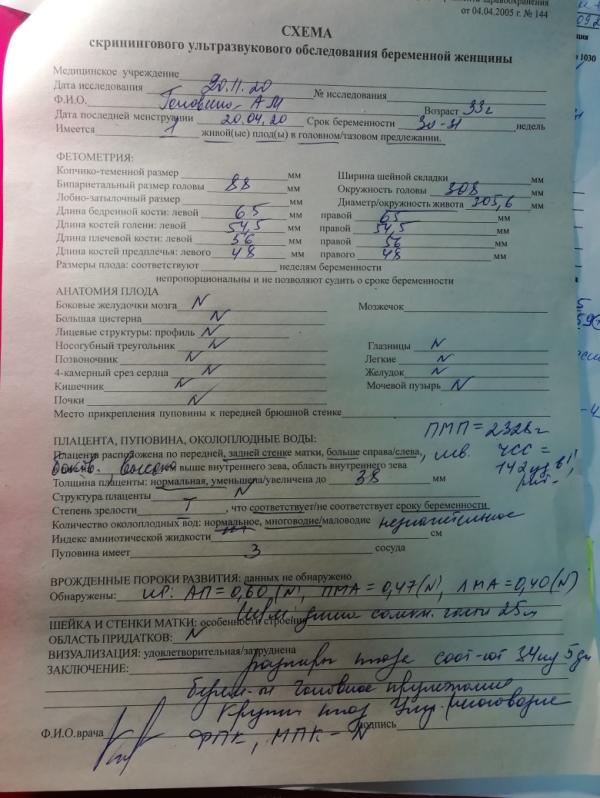 здравоохранения
от 04.04.2005 г. № 144
СХЕМА
скринингового ультразвукового обследования беременной женщины
Медицинское учреждение
Дата исследования 20.11.20 № исследования
Ф.И.О. А М Возраст 33 г
Дата последней менструации 20.04.20 Срок беременности 30-31 недель
Имеется 1 живой(ые) плод(ы) в головном/тазовом предлежании.
ФЕТОМЕТРИЯ:
Копчико-теменной размер мм Ширина шейной складки мм
Бипариетальный размер головы 88 мм Окружность головы 308 мм
Лобно-затылочный размер мм Диаметр/окружность живота 305,6 мм
Длина бедренной кости: левой 65 мм правой 65 мм
Длина костей голени: левой 54,5 мм правой 54,5 мм
Длина плечевой кости: левой 56 мм правой 56 мм
Длина костей предплечья: левого 48 мм правого 48 мм
Размеры плода: соответствуют неделям беременности
непропорциональны и не позволяют судить о сроке беременности
АНАТОМИЯ ПЛОДА
Боковые желудочки мозга N Мозжечок
Большая цистерна N
Лицевые структуры: профиль N
Носогубный треугольник N Глазницы N
Позвоночник N Легкие N
4-камерный срез сердца N Желудок N
Кишечник N Мочевой пузырь N
Почки N
Место прикрепления пуповины к передней брюшной стенке
ПМП = 2328 г
ПЛАЦЕНТА, ПУПОВИНА, ОКОЛОПЛОДНЫЕ ВОДЫ:
Плацента расположена по передней, задней стенке матки, больше справа/слева, ЧСС =
высоко выше внутреннего зева, область внутреннего зева 142 уд в 1'
Толщина плаценты: нормальная, уменьшена/увеличена до 38 мм
Структура плаценты N
Степень зрелости I, что соответствует/не соответствует сроку беременности
Количество околоплодных вод: нормальное, многоводие/маловодие
Индекс амниотической жидкости см
Пуповина имеет 3 сосуда
ВРОЖДЕННЫЕ ПОРОКИ РАЗВИТИЯ: данных не обнаружено
Обнаружены: АП = 0,60 (N), ПМА = 0,47 (N), ЛМА = 0,40 (N)
ШЕЙКА И СТЕНКИ МАТКИ: особенности строения
ОБЛАСТЬ ПРИДАТКОВ: N
ВИЗУАЛИЗАЦИЯ: удовлетворительная/затруднена
ЗАКЛЮЧЕНИЕ: размеры плода соот-ют 34 нед 5 дн
берем-ти Головное предлежание
Крупн плод Умер. многоводие
Ф.И.О. врача ФПК, МПК - N подпись